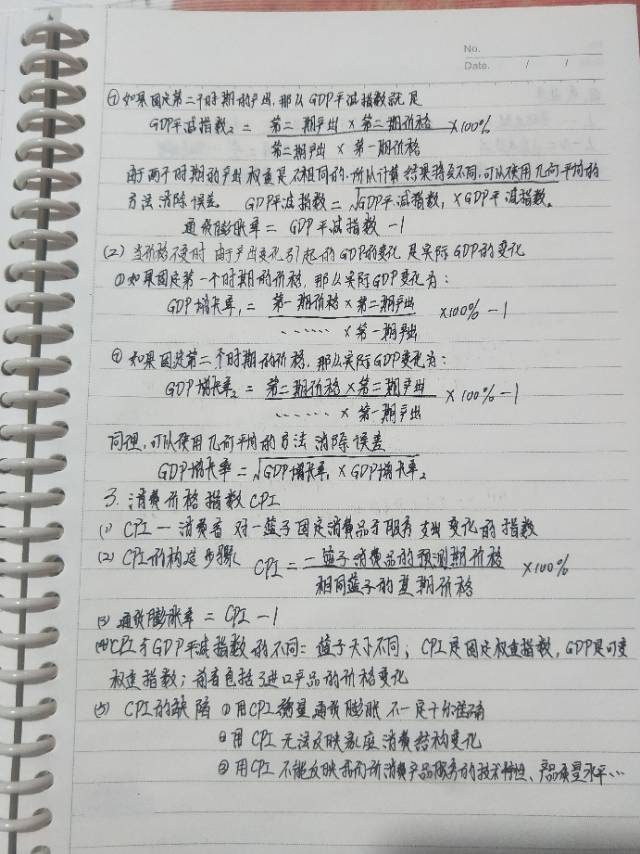 No.
Date. / /
②如果固定第二个时期的产出,那么GDP平减指数就是
GDP平减指数₂ = 第二期产出 × 第二期价格 ×100%
第二期产出 × 第一期价格
由于两个时期的产出权重是不相同的,所以计算结果将会不同,可以使用几何平均的
方法消除误差 GDP平减指数 = √GDP平减指数₁ × GDP平减指数₂
通货膨胀率 = GDP平减指数 -1
(2) 当价格不变时 由于产出变化引起的GDP的变化是实际GDP的变化
①如果固定第一个时期的价格,那么实际GDP变化为:
GDP增长率₁ = 第一期价格 × 第二期产出 ×100% -1
…… × 第一期产出
②如果固定第二个时期的价格,那么实际GDP变化为:
GDP增长率₂ = 第二期价格 × 第二期产出 ×100% -1
…… × 第一期产出
同理,可以使用几何平均的方法消除误差
GDP增长率 = √GDP增长率₁ × GDP增长率₂
3. 消费价格指数CPI
(1) CPI — 消费者对一篮子固定消费品于服务支出变化的指数
(2) CPI的构造步骤 CPI = 一篮子消费品的预测期价格 ×100%
相同篮子的基期价格
(3) 通货膨胀率 = CPI -1
(4) CPI于GDP平减指数的不同: 篮子大小不同; CPI是固定权重指数, GDP是可变
权重指数; 前者包括了进口产品的价格变化
(5) CPI的缺陷 ①用CPI衡量通货膨胀不一定十分准确
②用CPI无法反映家庭消费结构变化
③用CPI不能反映我们所消费产品服务的技术特性、产品质量水平…